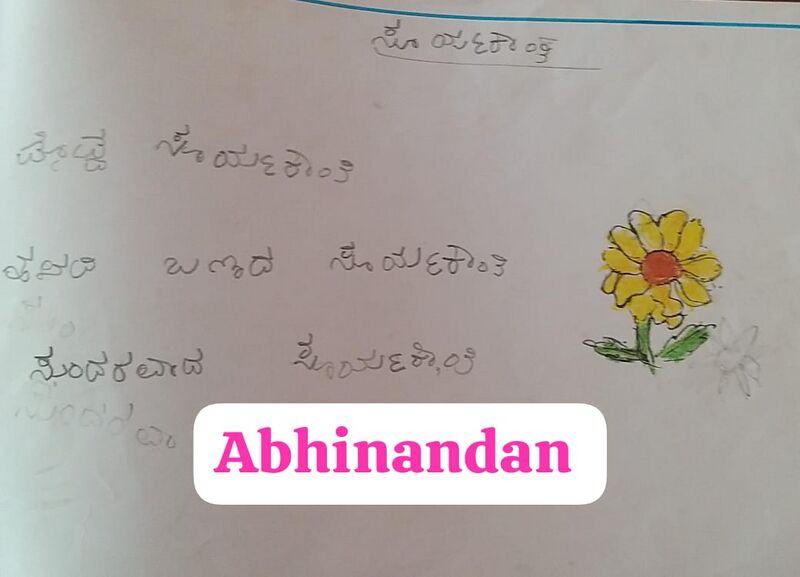 ಸೂರ್ಯಕಾಂತಿ
ದೊಡ್ಡ ಸೂರ್ಯಕಾಂತಿ
ಹಳದಿ ಬಣ್ಣದ ಸೂರ್ಯಕಾಂತಿ
ಸುಂದರವಾದ ಸೂರ್ಯಕಾಂತಿ
Abhinandan